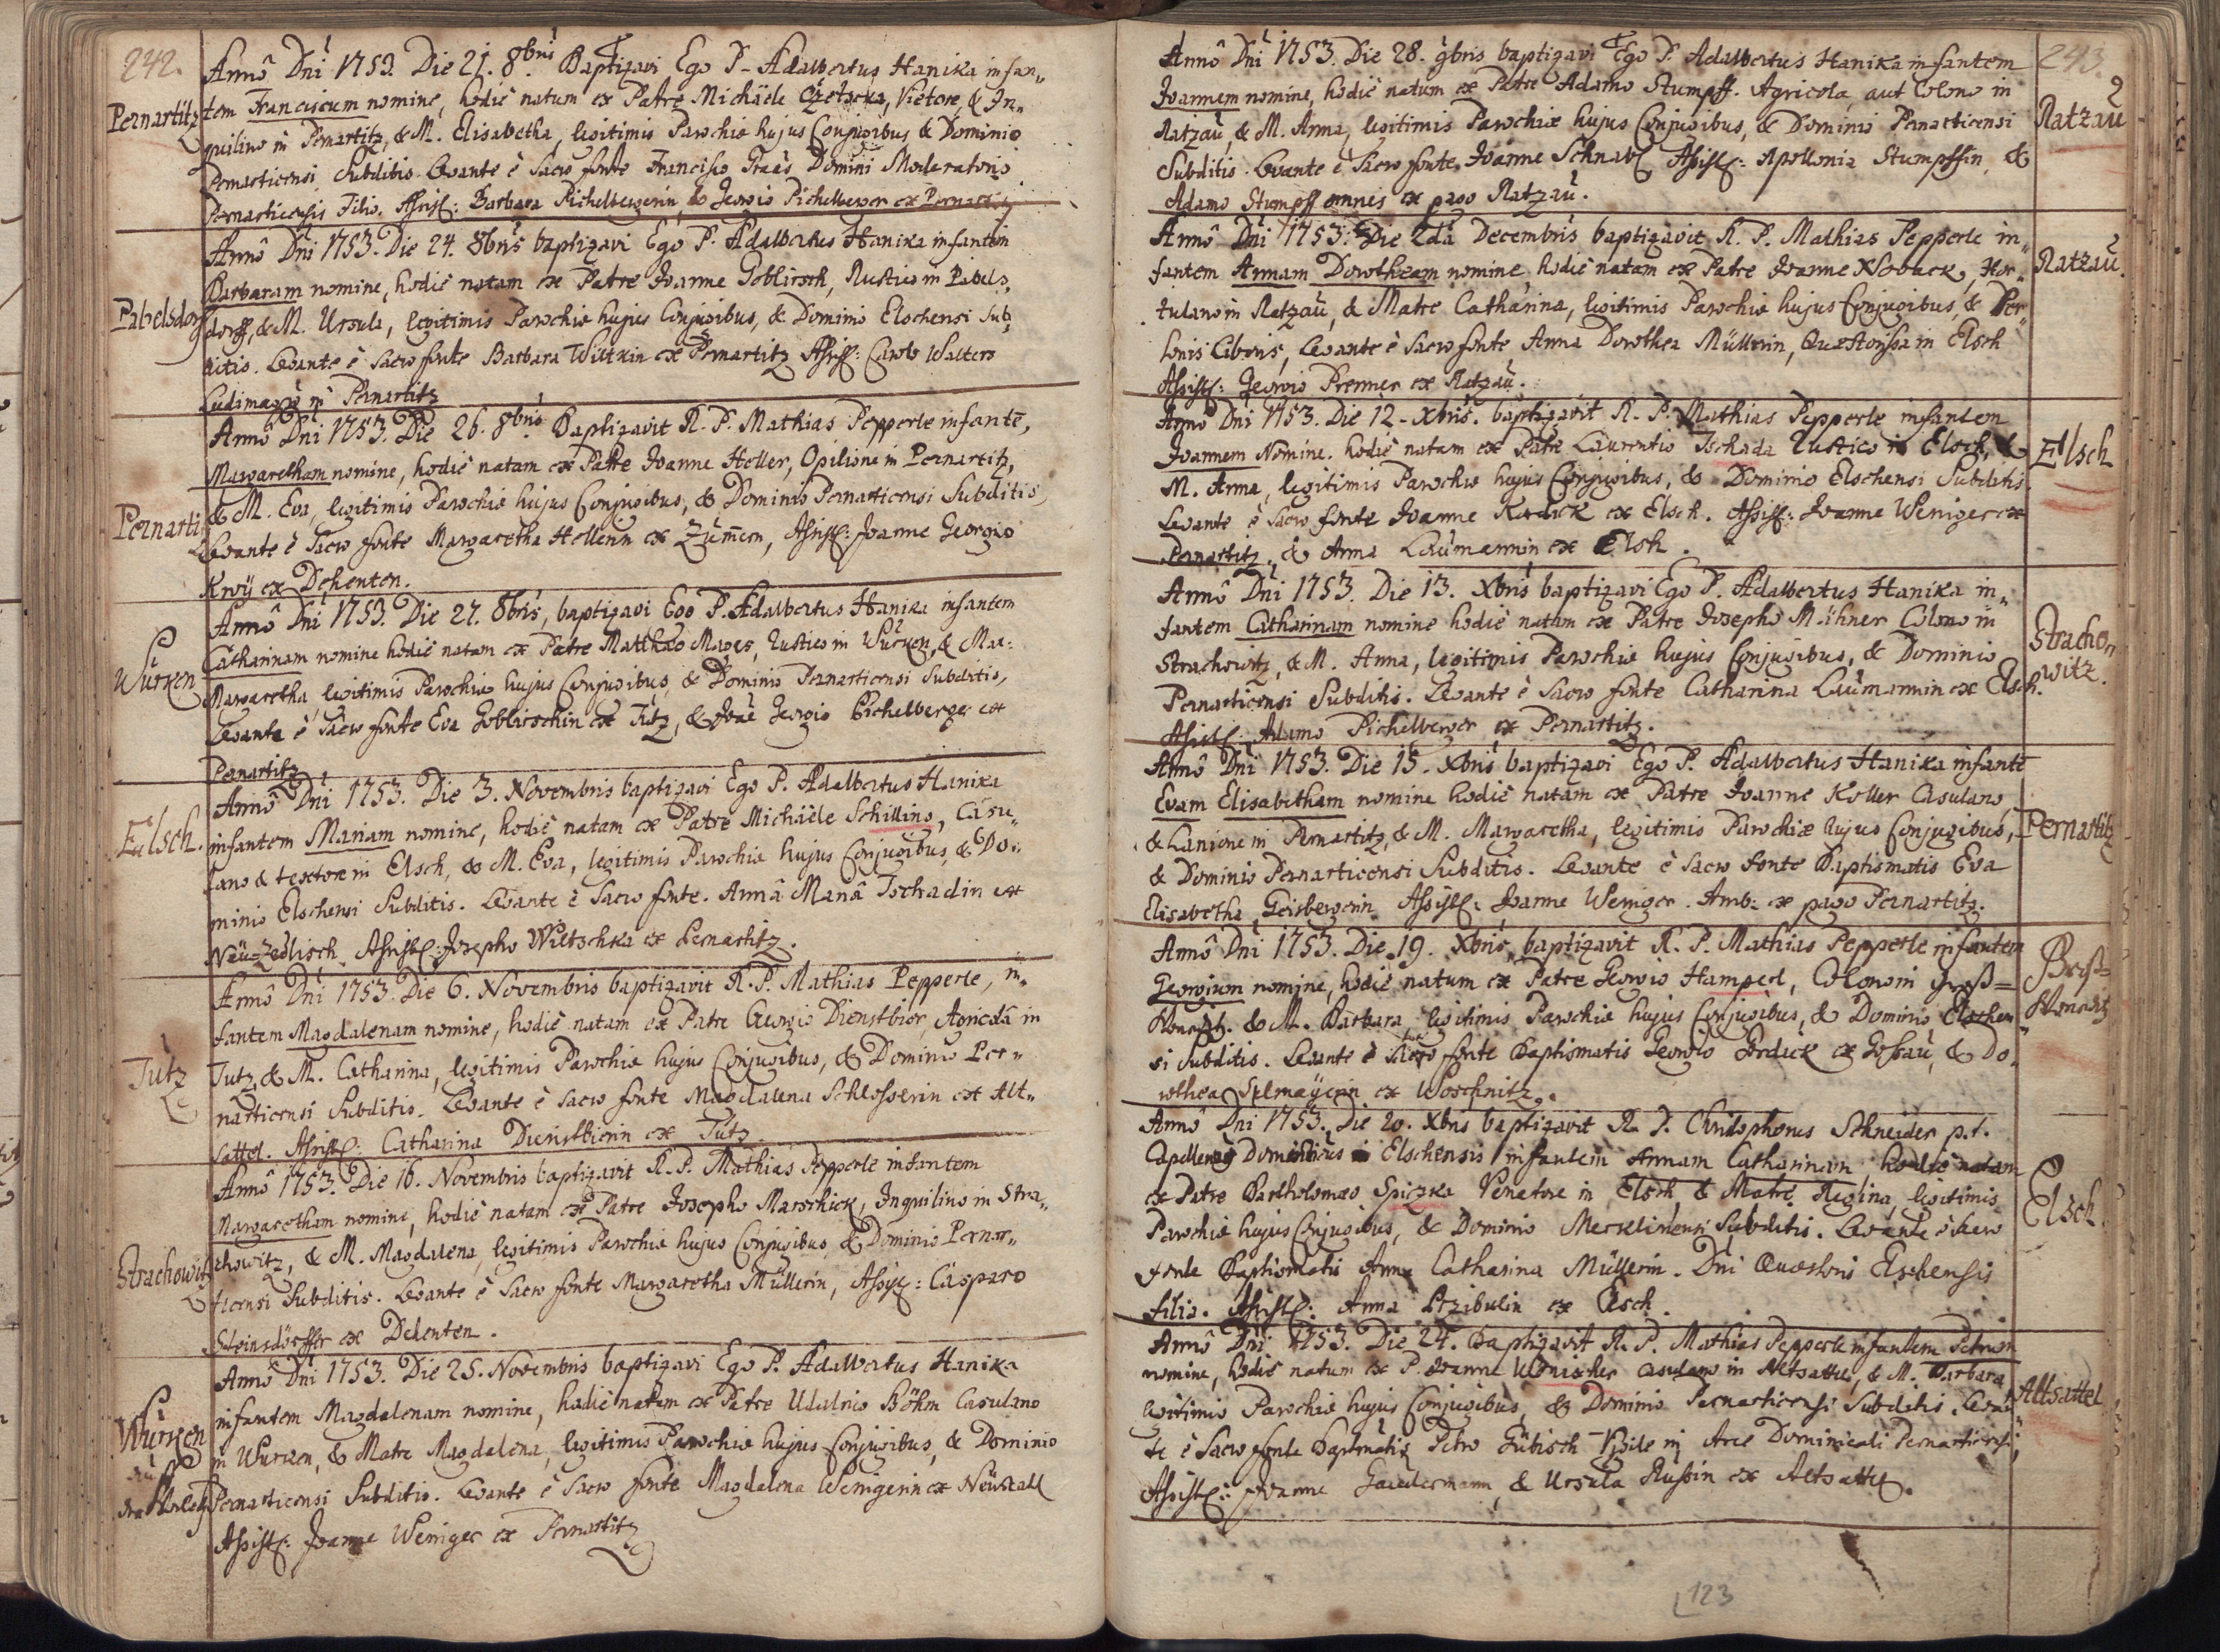 242.
Annô Dni 1753. Die 21. 8bris Baptizavi Ego P. Adalbertus Hanika infan„
Pernartitz
tem Franciscum nomine, hodiè natum ex Patre Michäele, Vietore, & In„
quilino in Pernartitz, & M. Elisabetha, legitimis Parochiæ hujus Conjugibus & Dominio
Pernarticensi Subditis. Levante è Sacro fonte Francisco Domini Moderatoris
Pernarticensis Filio. Assist: Barbara Pichelbergerin, & Georgio Pichelberger ex Pernartitz
Annô Dni 1753. Die 24. 8bris baptizavi Ego P. Adalbertus Hanika infantem
Barbaram nomine, hodiè natam ex Patre Joanne Goblirsch, Rustico in Pabels„
Pabelsdorff
dorff, & M. Ursula, legitimis Parochiæ hujus Conjugibus, & Dominio Elschensi Sub„
ditis. Levante è Sacro fonte Barbara ex Pernartitz Assist: Carolo Walters
Ludimagro in Pernartitz
Annô Dni 1753. Die 26. 8bris Baptizavit R. P. Mathias Pepperle infantē,
Margaretham nomine, hodiè natam ex Patre Joanne Heller, Opilione in Pernartitz,
Pernartitz
& M. Eva, legitimis Parochiæ hujus Conjugibus, & Dominio Pernarticensi Subditis,
Levante è Sacro fonte Margaretha Hellerin ex Zum̄ern, Assist: Joanne Georgio
ex Dehenten.
Annô Dni 1753. Die 27. 8bris, baptizavi Ego P. Adalbertus Hanika infantem
Catharinam nomine hodiè natam ex Patre Matthæo Mages, Rustico in Wurken, & Mar:
Wurken
Margaretha, legitimis Parochiæ hujus Conjugibus, & Dominio Pernarticensi Subditis,
Levante è Sacro fonte Eva Goblirschin ex Tutz, & Joāe Georgio Pichelberger ex
Pernartitz
Annô Dni 1753. Die 3. Novembris baptizavi Ego P. Adalbertus Hanika
Elsch.
infantem Mariam nomine, hodiè natam ex Patre Michäele Schilling, Casu„
lano & textore in Elsch, & M. Eva, legitimis Parochiæ hujus Conjugibus, & Do„
minio Elschensi Subditis. Levante è Sacro fonte. Annâ Mariâ Tschadin ex
Neu-Zedlisch. Assist: Josepho Wiltschka ex Pernartitz.
Annô Dni 1753. Die 6. Novembris baptizavit R. P. Mathias Pepperle, in„
fantem Magdalenam nomine, hodiè natam ex Patre Georgio Dienstbier, Agricolâ in
Tutz
Tutz, & M. Catharina, legitimis Parochiæ hujus Conjugibus, & Dominio Per„
narticensi Subditis. Levante è Sacro fonte Magdalena Schlosserin ex Alt„
sattel. Assist: Catharina Dienstbierin ex Tutz.
Annô 1753. Die 16. Novembris baptizavit R. P. Mathias Pepperle infantem
Margaretham nomine, hodiè natam ex Patre Josepho Marschick, Inquilino in Stra„
Strachowitz
chowitz, & M. Magdalena, legitimis Parochiæ hujus Conjugibus, & Dominio Pernar„
ticensi Subditis. Levante è Sacro fonte Margaretha Müllerin, Assist: Casparo
Steinsdörffer ex Dehenten.
Annô Dni 1753. Die 25. Novembris baptizavi Ego P. Adalbertus Hanika
infantem Magdalenam nomine, hodiè natam ex Patre Udalrico Böhm Casulano
Wurken
in Wurken, & Matre Magdalena, legitimis Parochiæ hujus Conjugibus, & Dominio
Pernarticensi Subditis. Levante è Sacro fonte Magdalena Wenigerin ex Neustadl
Assist: Joanne Weniger ex Pernartitz
243.
Annô Dni 1753. Die 28. 9bris baptizavi Ego P. Adalbertus Hanika infantem
Joannem nomine, hodiè natum ex Patre Adamo Stumpff. Agricola, aut Colono in
Ratzau
Ratzau, & M. Anna, legitimis Parochiæ hujus Conjugibus, & Dominio Pernarticensi
Subditis. Levante è Sacro fonte Joanne Schnabl Assist: Apollonia Stumpffin, &
Adamo Stumpff omnes ex pago Ratzau.
Annô Dni 1753. Die 2da Decembris baptizavit R. P. Mathias Pepperle in„
fantem Annam Dorotheam nomine, hodiè natam ex Patre Joanne Noback, Hor„
Ratzau.
tulano in Ratzau, & Matre Catharina, legitimis Parochiæ hujus Conjugibus, & Per„
sonis Liberis, Levante è Sacro fonte Anna Dorothea Müllerin, Quæstorissa in Elsch
Assist: Georgio Prenner ex Ratzau.
Annô Dni 1753. Die 12. Xbris. baptizavit R. P. Mathias Pepperle infantem
Joannem Nomine. hodiè natum ex Patre Laurentio Tschada Rustico in Elsch, &
Elsch
M. Anna, legitimis Parochiæ hujus Conjugibus, & Dominio Elschensi Subditis.
Levante è Sacro fonte Joanne ex Elsch. Assist: Joanne Weniger ex
Pernartitz, & Anna Laumannin ex Elsch.
Annô Dni 1753. Die 13. Xbris baptizavi Ego P. Adalbertus Hanika in„
fantem Catharinam nomine hodiè natam ex Patre Josepho Colono in
Strachowitz.
Strachowitz, & M. Anna, legitimis Parochiæ hujus Conjugibus, & Dominio
Pernarticensi Subditis. Levante è Sacro fonte Catharina Laumannin ex Elsch.
Assist: Adamo Pichelberger ex Pernartitz.
Annô Dni 1753. Die 15. Xbris baptizavi Ego P. Adalbertus Hanika infantē
Evam Elisabetham nomine hodiè natam ex Patre Joanne Koller Casulano
Pernartitz
& Lanione in Pernartitz, & M. Margaretha, legitimis Parochiæ hujus Conjugibus,
& Dominio Pernarticensi Subditis. Levante è Sacro fonte Baptismatis Eva
Elisabetha Geisbergerin. Assist: Joanne Weniger. Amb: ex pago Pernartitz.
Annô Dni 1753. Die 19. Xbris, baptizavit R. P. Mathias Pepperle infantem
Georgium nomine, hodiè natum ex Patre Georgio Hamperl, Colono in Groß=
Wonetitz. & M. Barbara legitimis Parochiæ hujus Conjugibus, & Dominio Elschen„
si Subditis. Levante è Sacro fonte Baptismatis Georgio ex Gossau, & Do„
rothea ex Woschnitz.
Annô Dni 1753. Die 20. Xbris baptizavit R. P. Christophorus Schneider p.t.
Capellanus Domesticus Elschensis infantem Annam Catharinam hodiè natam
ex Patre Bartholomæo Spiczka Venatore in Elsch & Matre Regina, legitimis
Elsch.
Parochiæ hujus Conjugibus, & Dominio Merklinensi Subditis. Levante è Sacro
fonte Baptismatis Anna Catharina Müllerin. Dni Quæstoris Elschensis
filia. Assist: Anna ex Elsch.
Annô Dni 1753. Die 24. Baptizavit R. P. Mathias Pepperle infantem Petrum
nomine, hodiè natum ex P. Joanne casulano in Altsattel, & M. Barbara
Altsattel
legitimis Parochiæ hujus Conjugibus, & Dominio Pernarticensi Subditis. Levan„
te è Sacro fonte Baptismatis Petro Gübisch Vigile in Arce Dominicali Pernarticensi,
Assist: Joanne & Ursula Russin ex Altsattel.
123